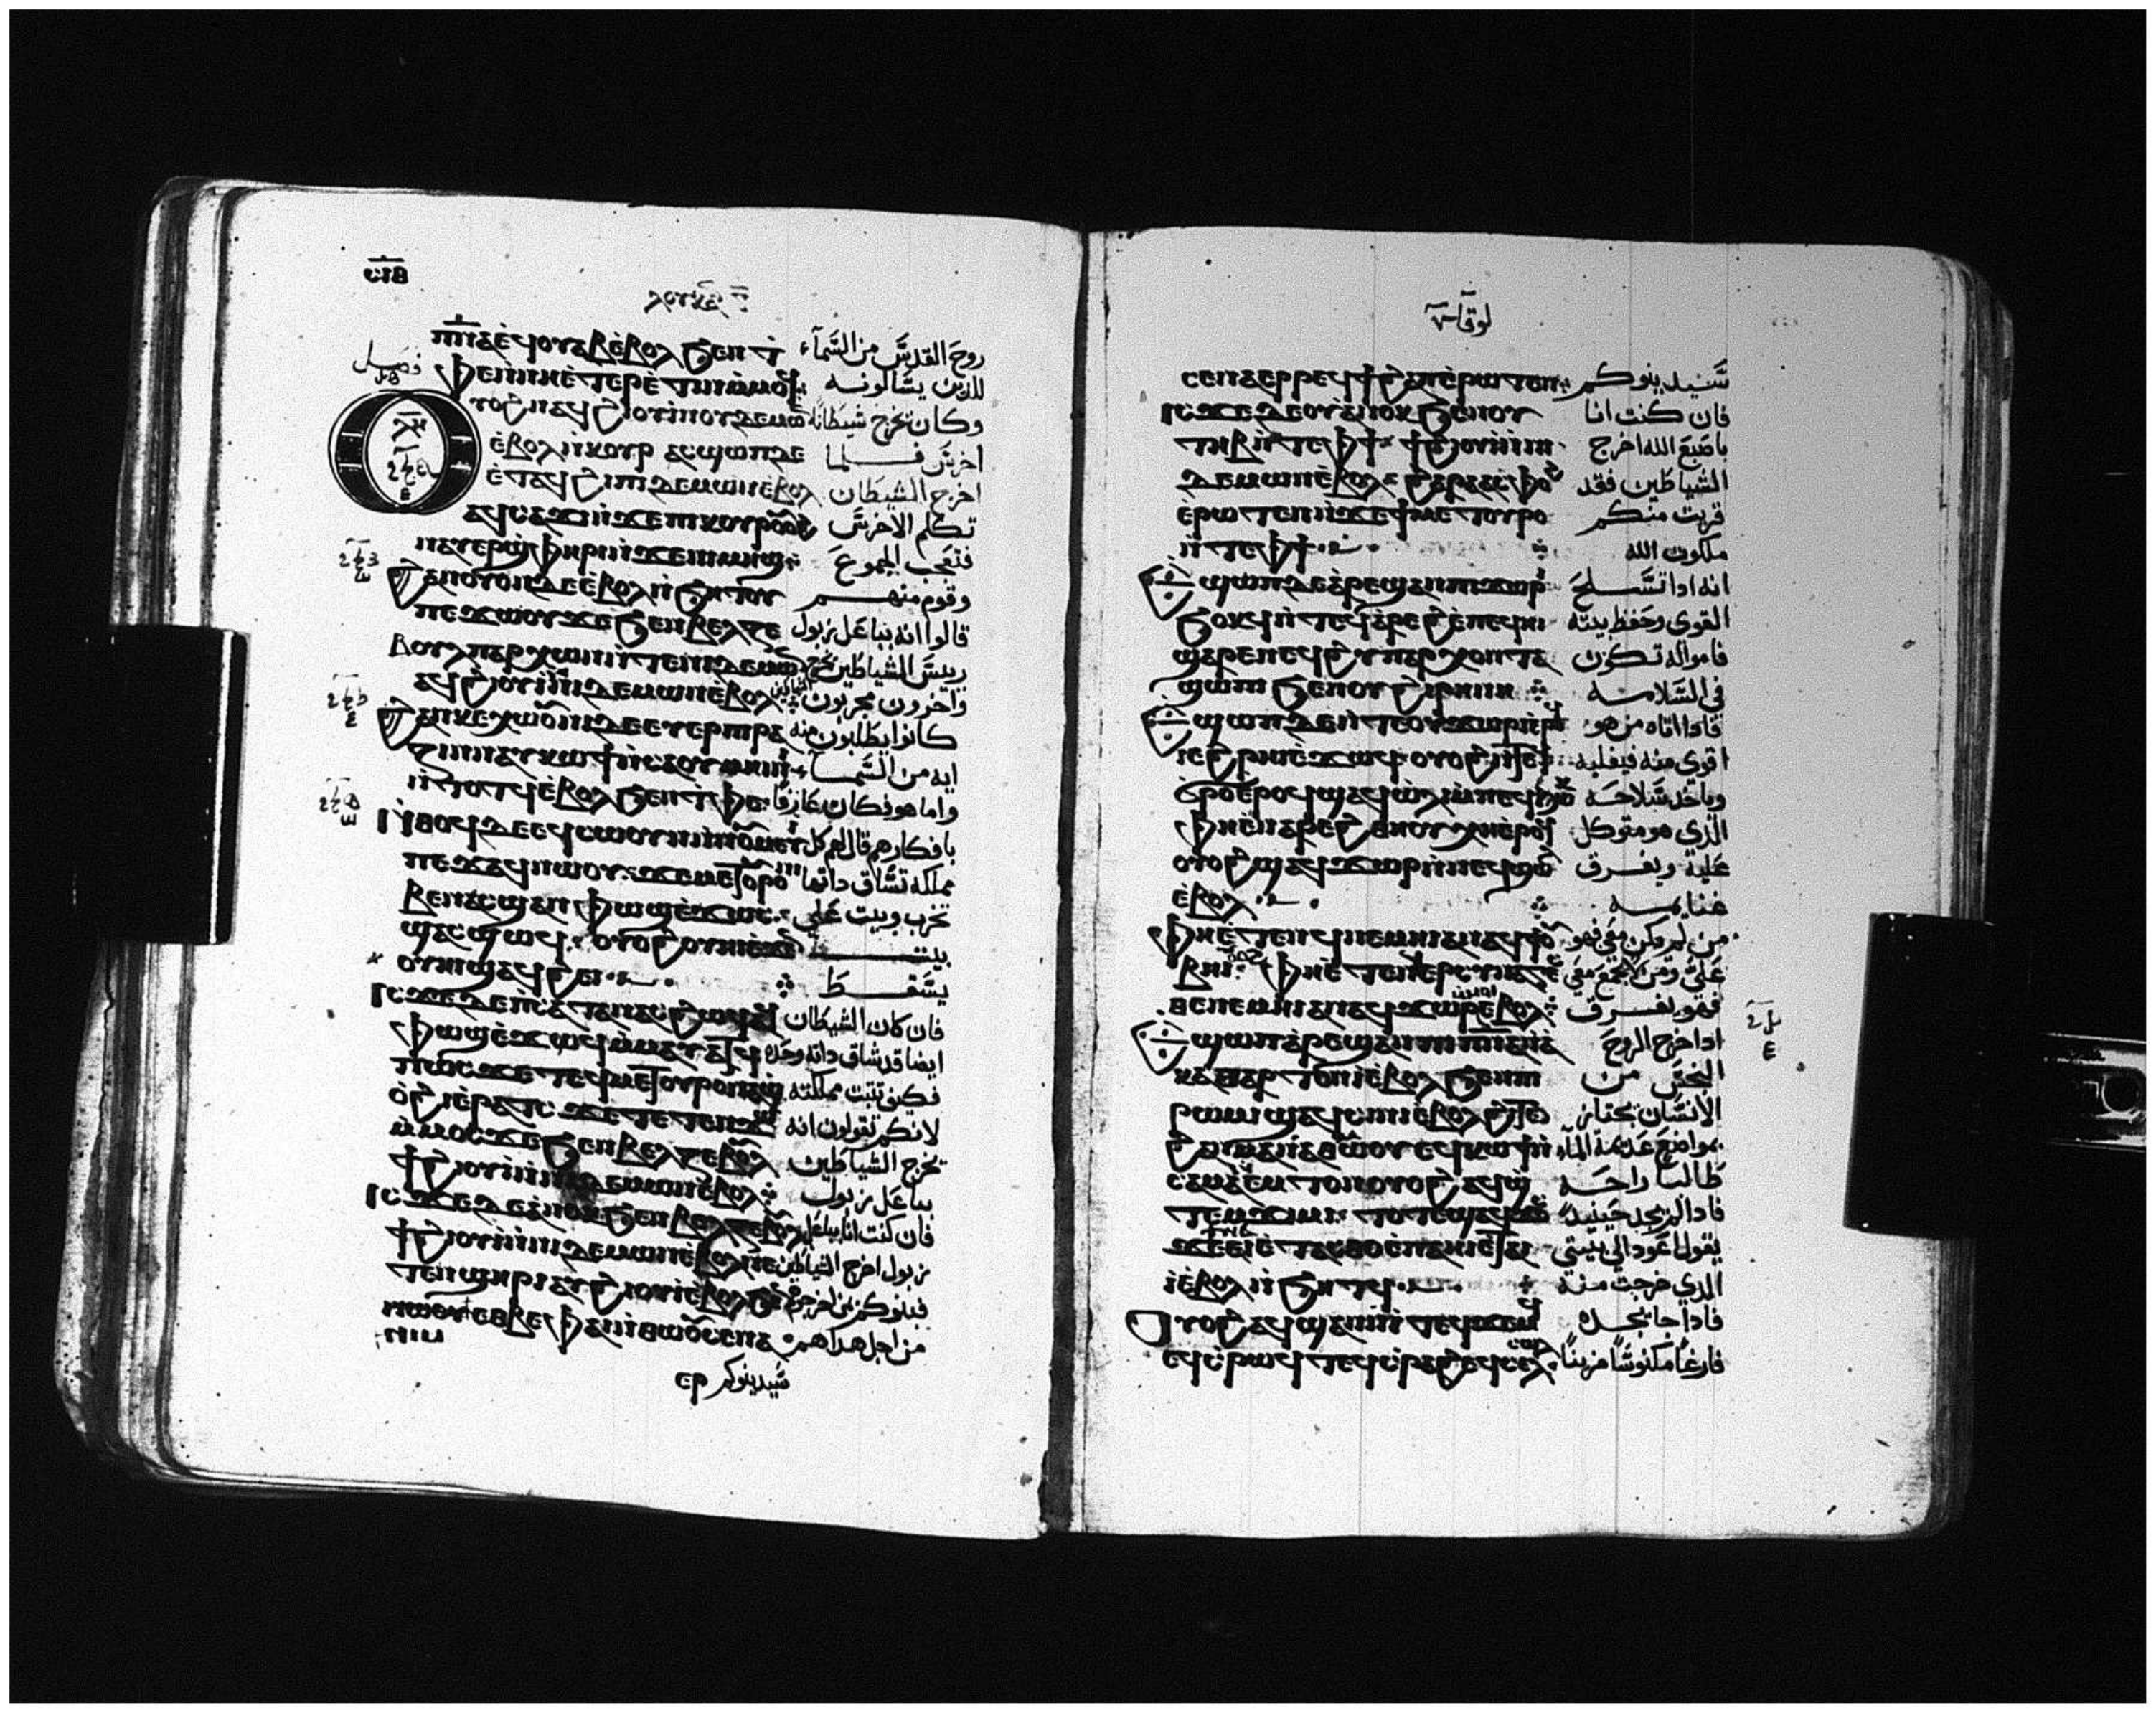 ⲥⲓⲃ
ⲗⲟⲩⲕⲁⲛ
ⲡⲛ̅ⲁ̅ ⲉϥⲟⲩⲁⲃ ⲉⲃⲟⲗ ϧⲉⲛ ⲧ روح القدس من السماء
ⲫⲉ ⲛⲛⲏ ⲉⲧⲉⲣⲉⲧⲓⲛ ⲙⲙⲟϥ للذين يسالونه
فصل
ⲟⲩⲟϩ ⲛⲁϥϩⲓⲟⲩⲓ ⲛⲟⲩⲇⲉⲙⲱⲛ وكان يخرج شيطانا
ⲉⲃⲟⲗ ⲛⲕⲟⲩⲣ ⲁⲥϣⲱⲡⲓ ⲇⲉ اخرس فلما
ⲉⲧⲁϥϩⲓ ⲡⲓⲇⲉⲙⲱⲛ ⲉⲃⲟⲗ اخرج الشيطان
ⲁϥⲥⲁϫⲓ ⲛϫⲉ ⲡⲓⲕⲟⲩⲣ ⲟⲩⲟϩ تكلم الاخرس
ⲛⲁⲩⲉⲣϣⲫⲏⲣⲓ ⲛϫⲉ ⲛⲓⲙⲏϣ فتعجب الجموع
ϩⲁⲛⲟⲩⲟⲛ ⲇⲉ ⲉⲃⲟⲗ ⲛϧⲏⲧⲟⲩ وقوم منهم
ⲡⲉϫⲱⲟⲩ ϫⲉ ϧⲉⲛ ⲃⲉⲗⲍⲉ قالوا انه ببا عل زبول
ⲃⲟⲩⲗ ⲡⲁⲣⲭⲱⲛ ⲛⲧⲉ ⲛⲓⲇⲉⲙⲱⲛ ريس الشياطين يخرج الشياطين
ⲁϥϩⲓⲟⲩⲓ ⲛⲛⲓⲇⲉⲙⲱⲛ ⲉⲃⲟⲗ واخرون مجربون
ϩⲁⲛⲕⲉⲭⲱⲟⲩⲛⲓ ⲇⲉ ⲉⲩⲉⲣⲡⲓⲣⲁ كانوا يطلبون منه
ⲍⲓⲛ ⲛⲁⲩⲕⲱϯ ⲛⲥⲁ ⲟⲩⲙⲏⲓⲛⲓ ايه من السماء
ⲛⲧⲟⲧϥ ⲉⲃⲟⲗ ϧⲉⲛ ⲧⲫⲉ واما هو فكان عارفا
ⲛⲑⲟϥ ⲇⲉ ⲉϥⲥⲱⲟⲩⲛ ⲛⲛⲟⲩⲙⲉⲩⲓ بافكارهم قال لهم كل
ⲡⲉϫⲁϥ ⲛⲱⲟⲩ ϫⲉ ⲙⲉⲧⲟⲩⲣⲟ ⲛⲓ مملكه تشاق داتها
ⲃⲉⲛ ⲁⲥϣⲁⲛⲫⲱϣ ⲉϫⲱⲥ تخرب وبيت على
ϣⲁⲥϣⲱϥ ⲟⲩⲟϩ ⲟⲩⲏⲓ ⲉϫⲉⲛ بيت
ⲟⲩⲏⲓ ϣⲁϥϩⲉⲓ يسقط
ⲓⲥϫⲉ ⲇⲉ ⲡⲥⲁⲧⲁⲛⲁⲥ ϩⲱϥ ⲁϥ فان كان الشيطان
ⲫⲱϣ ⲉϫⲱϥ ⲙⲙⲁⲩⲁⲧϥ ايضا قد شاق داته وحده
ⲡⲱⲥ ϫⲉ ⲧⲉϥⲙⲉⲧⲟⲩⲣⲟ ⲛⲁϣ فكيف تثبت مملكته
ⲟϩⲓ ⲉⲣⲁⲧⲥ ϫⲉ ⲧⲉⲧⲉⲛϫⲱ لانكم تقولون انه
ⲙⲙⲟⲥ ϫⲉ ϧⲉⲛ ⲃⲉⲗⲍⲉⲃⲟⲩⲗ يخرج الشياطين
ϯϩⲓⲟⲩⲓ ⲛⲛⲓⲇⲉⲙⲱⲛ ⲉⲃⲟⲗ ببا عل زبول
ⲓⲥϫⲉ ⲇⲉ ⲁⲛⲟⲕ ϧⲉⲛ ⲃⲉⲗⲍⲉⲃⲟⲩⲗ فان كنت انا ببا عل
ϯϩⲓⲟⲩⲓ ⲛⲛⲓⲇⲉⲙⲱⲛ ⲉⲃⲟⲗ ⲓⲉ ⲛⲉ زبول اخرج الشياطين
ⲧⲉⲛϣⲏⲣⲓ ⲁⲩϩⲓⲟⲩⲓ ⲉⲃⲟⲗ ϧⲉⲛ فبنوكم
ⲛⲓⲙ ⲉⲑⲃⲉ ⲫⲁⲓ ⲛⲑⲱⲟⲩ ⲥⲉⲛⲁ من اجل هدا هم
ⲉⲣ سيدينوكم
لوقاس
ⲥⲉⲛⲁⲉⲣⲣⲉϥϯϩⲁⲡ ⲉⲣⲱⲧⲉⲛ سيدينوكم
ⲓⲥϫⲉ ⲇⲉ ⲁⲛⲟⲕ ϧⲉⲛ ⲟⲩ فان كنت انا
ⲧⲏⲃ ⲛⲧⲉ ⲫϯ ϯϩⲓⲟⲩⲓ ⲛⲛⲓ باصبع الله اخرج
ⲇⲉⲙⲱⲛ ⲉⲃⲟⲗ ϩⲁⲣⲁ ⲁⲥⲫⲟϩ الشياطين فقد
ⲉⲣⲱⲧⲉⲛ ⲛϫⲉ ϯⲙⲉⲧⲟⲩⲣⲟ قربت منكم
ⲛⲧⲉ ⲫϯ ملكوت الله
ⲉϣⲱⲡ ⲇⲉ ⲁⲣⲉϣⲁⲛ ⲡⲓϫⲱⲣⲓ انه ادا تسلح
ϧⲟⲕϥ ⲛⲧⲉϥⲁⲣⲉϩ ⲉⲡⲉϥⲏⲓ القوى وحفظ بيته
ϣⲁⲣⲉ ⲛⲉϥϩⲩⲡⲁⲣⲭⲟⲛⲧⲁ فامواله تكون
ϣⲱⲡⲓ ϧⲉⲛ ⲟⲩϩⲓⲣⲏⲛⲏ في السلامه
ⲉϣⲱⲡ ⲇⲉ ⲛⲧⲉ ⲟⲩϫⲱⲣⲓ فادا اتاه من هو
ⲓ ⲉϩⲣⲏⲓ ⲉϫⲱϥ ⲟⲩⲟϩ ⲛⲧⲉϥ اقوى منه فيغلبه
ϭⲣⲟ ⲉⲣⲟϥ ϣⲁϥⲱⲗⲓ ⲙⲡⲉϥϧⲱⲕ وياخد سلاحه
ⲫⲏ ⲉⲛⲁⲣⲉ ϩⲑⲏϥ ⲭⲏ ⲉⲣⲟϥ الدي هو متوكل
ⲟⲩⲟϩ ϣⲁϥϫⲱⲣ ⲛⲛⲉϥϣⲱⲗ عليه ويفرق
ⲉⲃⲟⲗ غنايمه
ⲫⲏ ⲉⲧⲉⲛϥⲛⲉⲙⲏⲓ ⲁⲛ ⲁϥϯ ⲟⲩ من لم يكن معي فهو
ⲃⲏⲓ ⲫⲏ ⲉⲧⲉⲛ علي ومن لا يجمع معي
ⲛⲉⲙⲏⲓ ⲁⲛ ⲁϥϫⲱⲣ ⲉⲃⲟⲗ فهو يفرق
ⲉϣⲱⲡ ⲁⲣⲉϣⲁⲛ ⲡⲓⲡⲛ̅ⲁ̅ ⲛⲁ ادا خرج الروح
ⲕⲁⲑⲁⲣⲧⲟⲛ ⲓ ⲉⲃⲟⲗ ϧⲉⲛ ⲡⲓ النجس من
ⲣⲱⲙⲓ ϣⲁϥⲥⲓⲛⲓ ⲉⲃⲟⲗ ϩⲓⲧⲉⲛ الانسان يجتاز
ϩⲁⲛⲙⲁ ⲛⲁⲑⲙⲱⲟⲩ ⲉϥⲕⲱϯ ⲛ بمواضع عديمه الماء
ⲥⲁ ⲙⲁ ⲛⲉⲙⲧⲟⲛ ⲟⲩⲟϩ ⲁϥϣ طالبا راحه
ⲧⲉⲙϫⲓⲙⲓ ⲧⲟⲧⲉ ϣⲁϥϫⲟⲥ فادا لم يجد حينيد
ϫⲉ ⲉⲓⲉⲧⲁⲥⲑⲟ ⲉⲡⲁⲏⲓ ⲉⲧⲁⲓ يقول اعود الى بيتي
ⲓ ⲉⲃⲟⲗ ⲛϧⲏⲧϥ الدي خرجت منه
ⲟⲩⲟϩ ⲁϥϣⲁⲛⲓ ⲛⲧⲉϥϫⲉⲙϥ فادا جا يجده
ⲉϥⲥⲣⲱϥⲧ ⲉϥⲥⲣⲁϩ ⲉϥⲥⲉⲗ فارغا مكنوسا مزينا